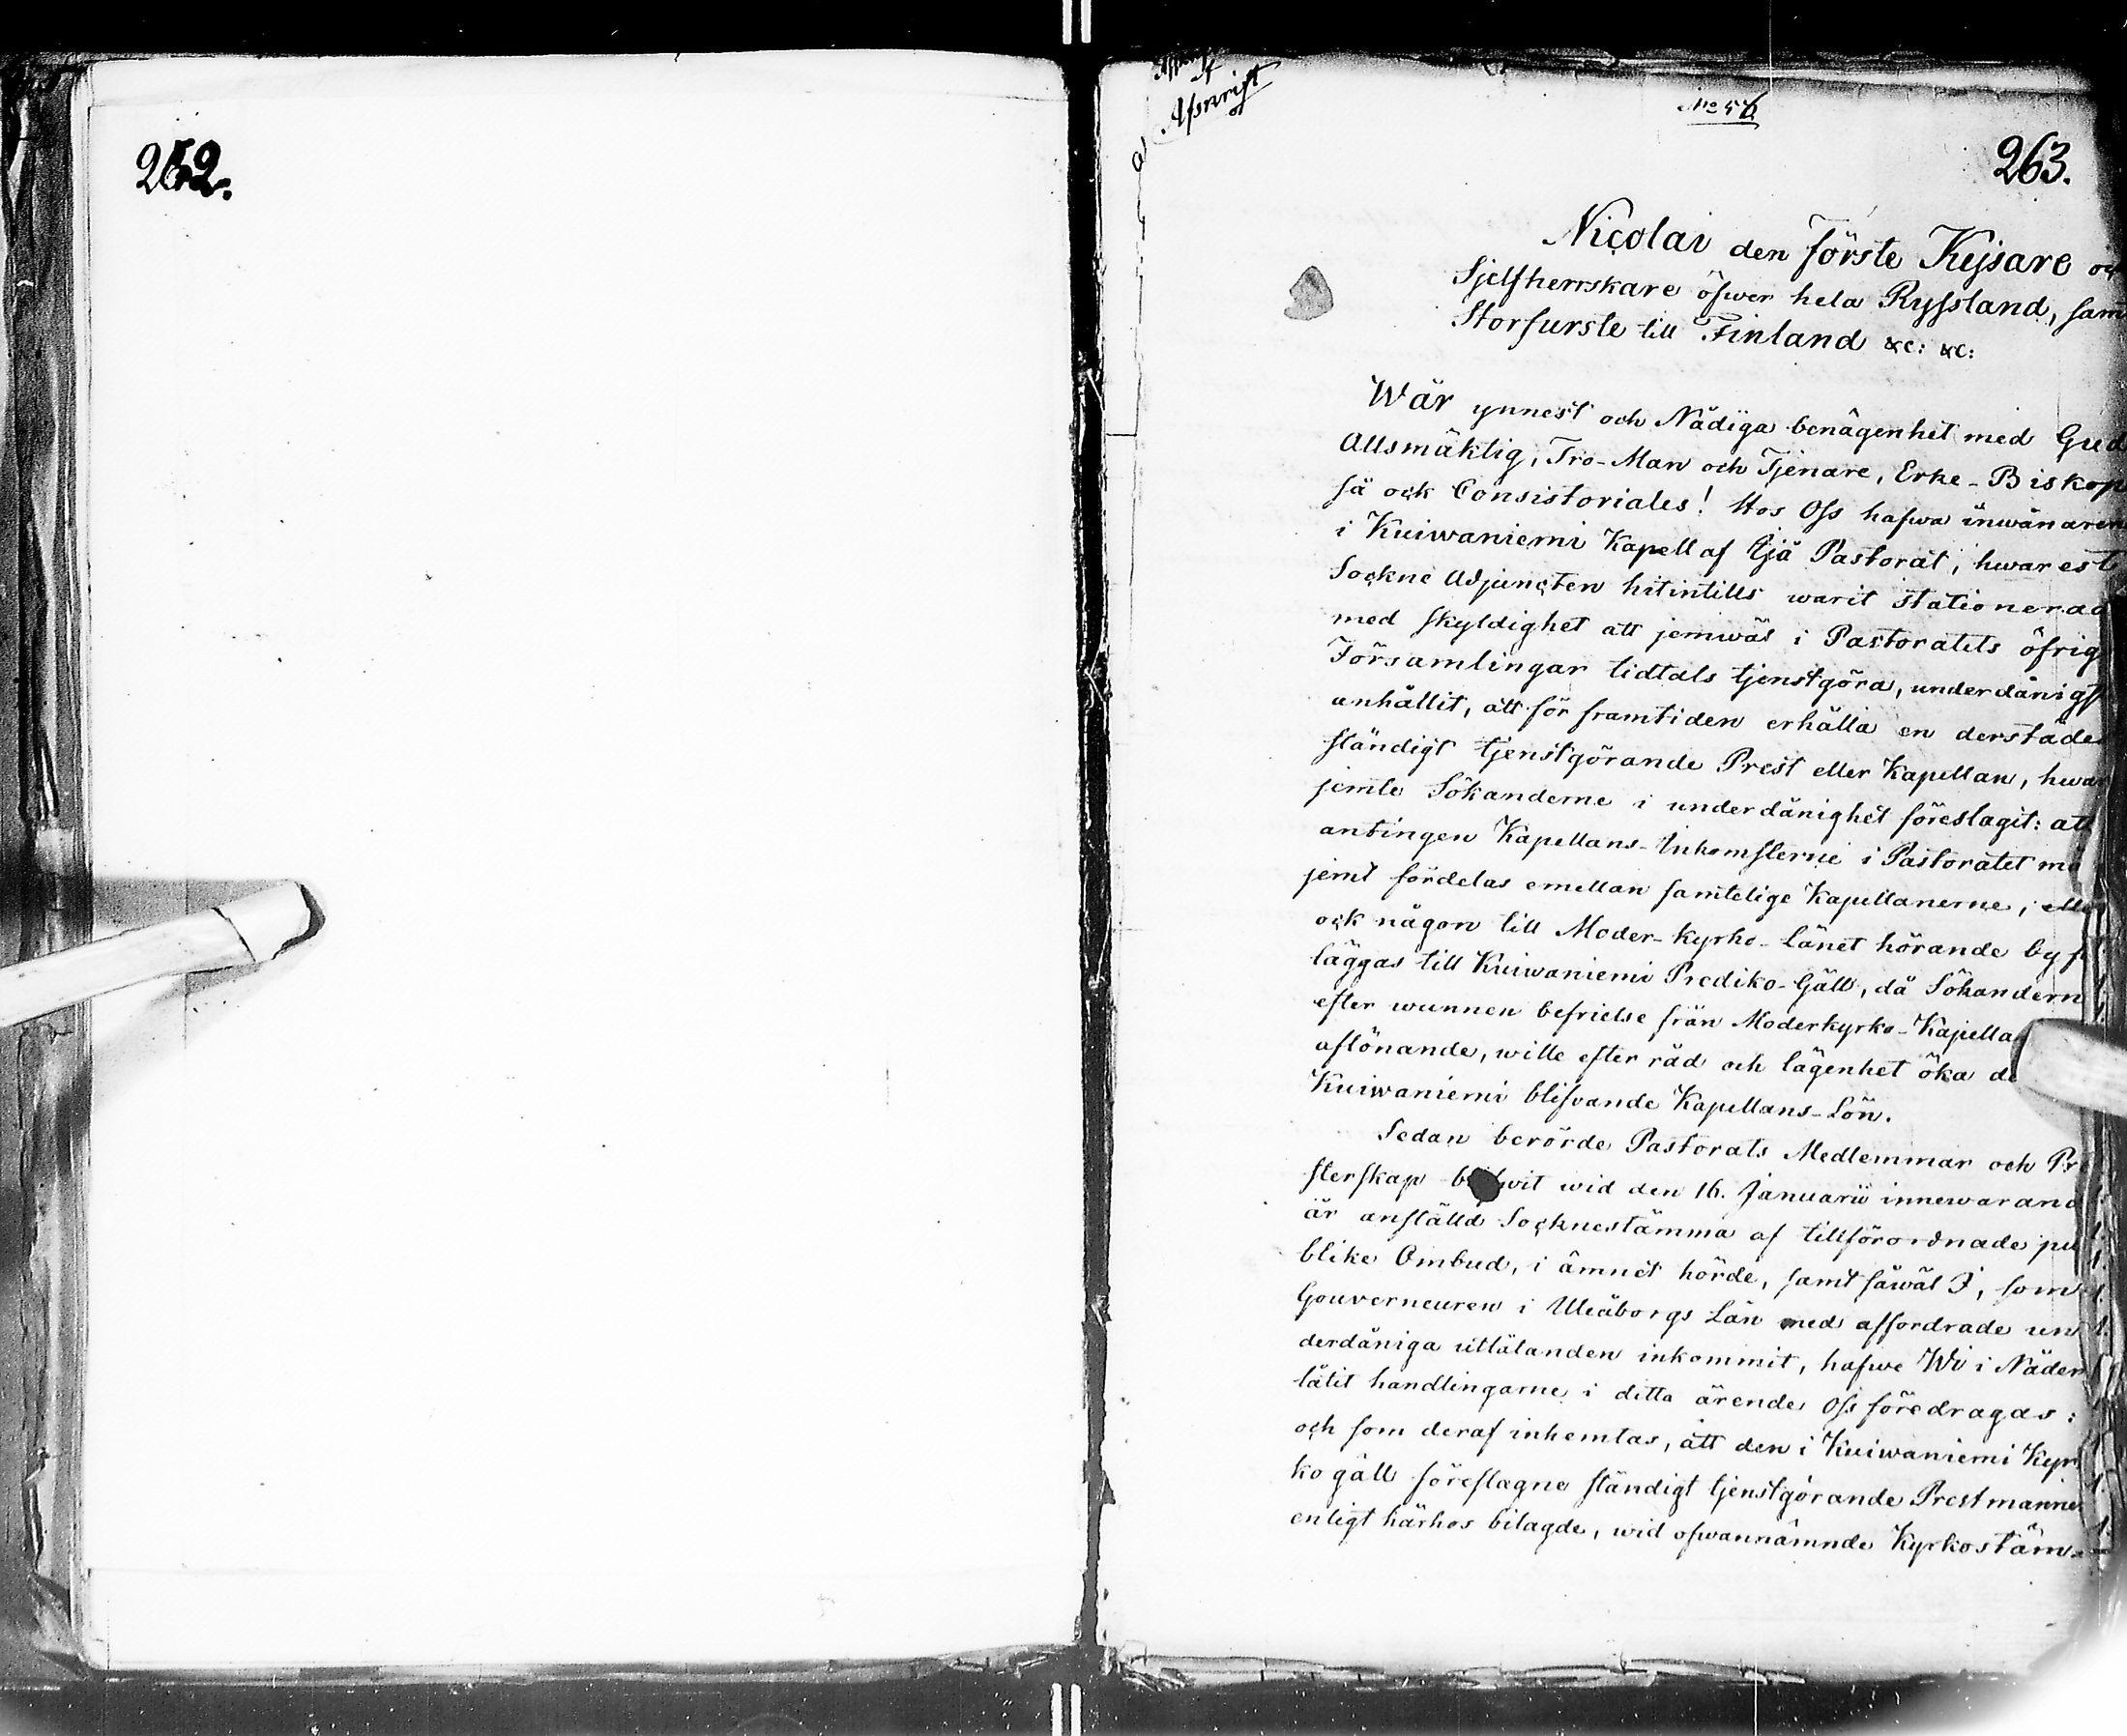 262.
Afskrift
No 56
263.
Nicolai den förste Kejsare och
Sjelfherrskare öfwer hela Ryssland, sam
Storfurste till Finland &c: &c:
Wår ynnest och Nådiga benägenhet med Gud
Allsmäktig, Tro-Man och Tjenare, Erke-Biskop
så ock Consistoriales! Hos Oss hafwa inwånaren
i Kuiwaniemi Kapell af Ijå Pastorat, hwarest
Sockne Adjuncten hitintills warit stationerad
med skyldighet att jemwäl i Pastoratets öfrig
Församlingar tidtals tjenstgöra, underdånigst
anhållit, att för framtiden erhålla en derstädes
ständigt tjenstgörande Prest eller Kapellan, hwar
jemte Sökanderne i underdånighet föreslagit: att
antingen Kapellans-Inkomsterne i Pastoratet må
jemt fördelas emellan samtelige Kapellanerne, elle
ock någon till Moder-kyrko-Länet hörande by f
läggas till Kuiwaniemi Prediko-Gäll, då Sökandern
efter wunnen befrielse från Moderkyrko-Kapella
aflönande, wille efter råd och lägenhet öka de
Kuiwaniemi blifvande Kapellans-Lön.
Sedan berörde Pastorats Medlemmar och Pr
sterskap blifwit wid den 16. Januarii innewarand
år anställd Socknestämma af tillförordnade pu
blike Ombud, i ämnet hörde, samt såwäl I, som
Gouverneuren i Uleåborgs Län med affordrade un
derdåniga utlåtanden inkommit, hafwe Wi i Nåder
låtit handlingarne i detta ärende Oss föredragas:
och som deraf inhemtas, att den i Kuiwaniemi Kyr
ko gäll föreslagne ständigt tjenstgörande Prestmannen
enligt härhos bilagde, wid ofwannämnde Kyrkostäm-